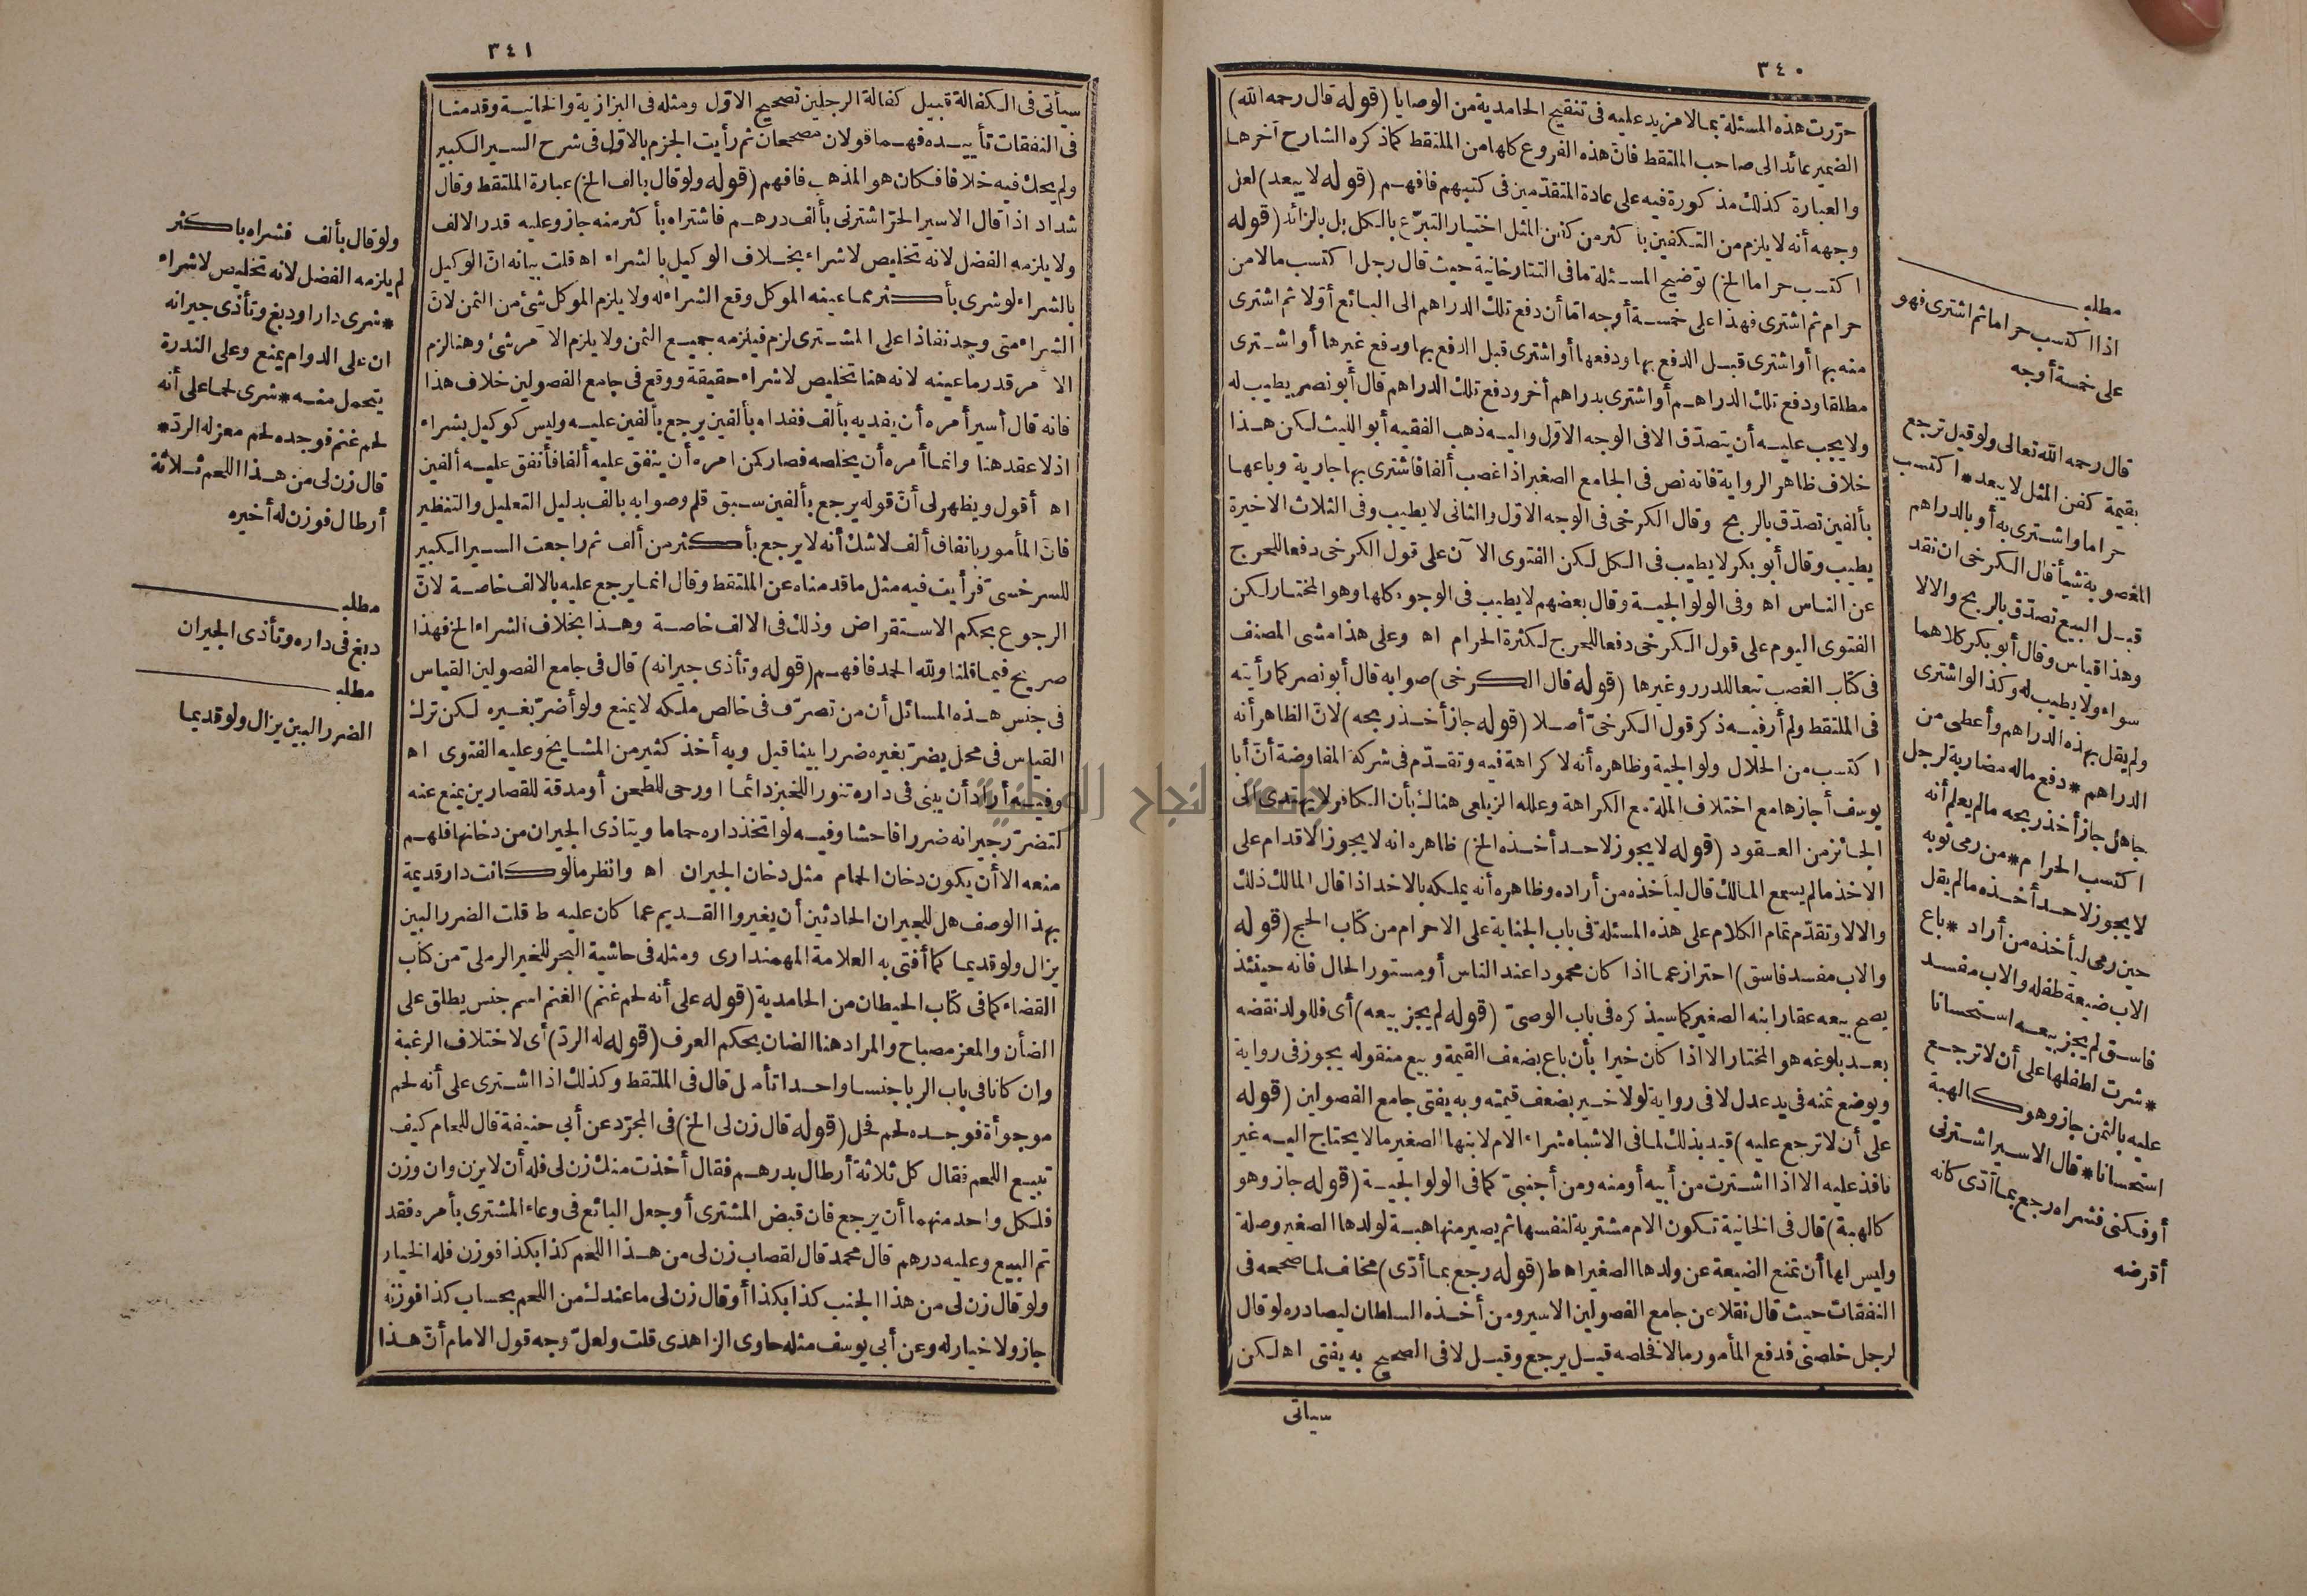 ٣٤٠
حررت هذه المسئلة بما لا مزيد عليه فى تنقيح الحامدية من الوصايا (قوله قال رحمه الله)
الضمير عائد الى صاحب الملتقط فان هذه الفروع كلها من الملتقط كما ذكره الشارح آخرها
والعبارة كذلك مذكورة فيه على عادة المتقدّمين فى كتبهم فافهم (قوله لا يبعد) لعل
وجهه أنه لا يلزم من التكفين بأكثر من كفن المثل اختيار التبرّع بالكل بل بالزائد (قوله
اكتسب حراما الخ) توضيح المسئلة ما فى التتارخانية حيث قال رجل اكتسب مالا من
حرام ثم اشترى فهذا على خمسة أوجه اما أن دفع تلك الدراهم الى البائع أوّلا ثم اشترى
منه بها أو اشترى قبل الدفع بها ودفعها أو اشترى قبل الدفع بها ودفع غيرها أو اشترى
مطلقا ودفع تلك الدراهم أو اشترى بدراهم أخر ودفع تلك الدراهم قال أبو نصر يطيب له
ولا يجب عليه أن يتصدّق الا فى الوجه الاوّل واليه ذهب الفقيه أبو الليث لكن هذا
خلاف ظاهر الرواية فانه نص فى الجامع الصغير اذا غصب ألفا فاشترى بها جارية وباعها
بألفين تصدّق بالربح وقال الكرخى فى الوجه الاوّل والثانى لا يطيب وفى الثلاث الاخيرة
يطيب وقال أبو بكر لا يطيب فى الكل لكن الفتوى الآن على قول الكرخى دفعا للحرج
عن الناس اه وفى الولوالجية وقال بعضهم لا يطيب فى الوجوه كلها وهو المختار لكن
الفتوى اليوم على قول الكرخى دفعا للحرج لكثرة الحرام اه وعلى هذا مشى المصنف
فى كتاب الغصب تبعا للدرر وغيرها (قوله قال الكرخى) صوابه قال أبو نصر كما رأيته
فى الملتقط ولم أر فيه ذكر قول الكرخىّ أصلا (قوله جاز أخذ ربحه) لانّ الظاهر أنه
اكتسب من الحلال ولوالجية وظاهره أنه لا كراهة فيه وتقدّم فى شركة المفاوضة أنّ أبا
يوسف أجازها مع اختلاف الملة مع الكراهة وعلله الزيلعى هناك بأن الكافر لا يهتدى الى
الجائز من العقود (قوله لا يجوز لاحد أخذه الخ) ظاهره انه لا يجوز الاقدام على
الاخذ ما لم يسمع المالك قال ليأخذه من أراده وظاهره أنه يملكه بالاخذ اذا قال المالك ذلك
والا لا وتقدّم تمام الكلام على هذه المسئلة فى باب الجناية على الاحرام من كتاب الحج (قوله
والاب مفسد فاسق) احتراز عما اذا كان محمودا عند الناس أو مستور الحال فانه حينئذ
يصح بيعه عقار ابنه الصغير كما سيذكره فى باب الوصىّ (قوله لم يجز بيعه) أى فللولد نقضه
بعد بلوغه هو المختار الا اذا كان خيرا بأن باع بضعف القيمة وبيع منقوله يجوز فى رواية
ويوضع ثمنه فى يد عدل لا فى رواية لولا خير بضعف قيمته وبه يفتى جامع الفصولين (قوله
على أن لا ترجع عليه) قيد بذلك لما فى الاشباه شراء الام لابنها الصغير ما لا يحتاج اليه غير
نافذ عليه الا اذا اشترت من أبيه أو منه ومن أجنبىّ كما فى الولوالجية (قوله جاز وهو
كالهبة) قال فى الخانية تكون الام مشترية لنفسها ثم يصير منها هبة لولدها الصغير وصلة
وليس لها أن تمنع الضيعة عن ولدها الصغير اه ط (قوله رجع بما أدّى) مخالف لما صححه فى
النفقات حيث قال نقلا عن جامع الفصولين الاسير ومن أخذه السلطان ليصادره لو قال
لرجل خلصنى فدفع المأمور مالا فخلصه قيل يرجع وقيل لا فى الصحيح به يفتى اه لكن
سيأتى
مطلب
اذا اكتسب حراما ثم اشترى فهو
على خمسة أوجه
قال رحمه الله تعالى ولو قيل ترجع
بقيمة كفن المثل لا يبعد * اكتسب
حراما واشترى به أو بالدراهم
المغصوبة شيأ قال الكرخى ان نقد
قبل البيع تصدّق بالربح والا لا
وهذا قياس وقال أبو بكر كلاهما
سواء ولا يطيب له وكذا لو اشترى
ولم يقل بهذه الدراهم وأعطى من
الدراهم * دفع ماله مضاربة لرجل
جاهل جاز أخذ ربحه ما لم يعلم أنه
اكتسب الحرام * من رمى ثوبه
لا يجوز لاحد أخذه ما لم يقل
حين رمى ليأخذه من أراد * باع
الاب ضيعة طفله والاب مفسد
فاسق لم يجز بيعه استحسانا
* شرت لطفلها على أن لا ترجع
عليه بالثمن جاز وهو كالهبة
استحسانا * قال الاسير اشترنى
أو فكنى فشراه رجع بما أدّى كأنه
أقرضه
٣٤١
سيأتى فى الكفالة قبيل كفالة الرجلين تصحيح الاوّل ومثله فى البزازية والخانية وقدمنا
فى النفقات تأييده فهما قولان مصححان ثم رأيت الجزم بالاوّل فى شرح السير الكبير
ولم يحك فيه خلافا فكان هو المذهب فافهم (قوله ولو قال بالف الخ) عبارة الملتقط وقال
شداد اذا قال الاسير الحرّ اشترنى بألف درهم فاشتراه بأكثر منه جاز وعليه قدر الالف
ولا يلزمه الفضل لانه تخليص لا شراء بخلاف الوكيل بالشراء اه قلت بيانه انّ الوكيل
بالشراء لو شرى بأكثر مما عينه الموكل وقع الشراء له ولا يلزم الموكل شئ من الثمن لانّ
الشراء متى وجد نفاذا على المشترى لزم فيلزمه جميع الثمن ولا يلزم الآمر شئ وهنا لزم
الآمر قدر ما عينه لانه هنا تخليص لا شراء حقيقة ووقع فى جامع الفصولين خلاف هذا
فانه قال أسير أمره أن يفديه بألف ففداه بألفين يرجع بألفين عليه وليس كوكيل بشراء
اذ لا عقد هنا وانما أمره أن يخلصه فصار كمن امره أن ينفق عليه ألفا فأنفق عليه ألفين
اه أقول ويظهر لى أنّ قوله يرجع بألفين سبق قلم وصوابه بالف بدليل التعليل والتنظير
فانّ المأمور بانفاق ألف لا شك أنه لا يرجع بأكثر من ألف ثم راجعت السير الكبير
للسرخسىّ فرأيت فيه مثل ما قدمناه عن الملتقط وقال انما يرجع عليه بالالف خاصة لانّ
الرجوع بحكم الاستقراض وذلك فى الالف خاصة وهذا بخلاف الشراء الخ فهذا
صريح فيما قلنا ولله الحمد فافهم (قوله وتأذى جيرانه) قال فى جامع الفصولين القياس
فى جنس هذه المسائل أن من تصرّف فى خالص ملكه لا يمنع ولو أضرّ بغيره لكن ترك
القياس فى محل يضرّ بغيره ضررا بينا قيل وبه أخذ كثير من المشايخ وعليه الفتوى اه
وفيه أراد أن يبنى فى داره تنورا للخبز دائما أو رحى للطحن أو مدقة للقصارين يمنع عنه
لتضرّر جيرانه ضررا فاحشا وفيه لو اتخذ داره حماما ويتأذى الجيران من دخانها فلهم
منعه الا أن يكون دخان الحمام مثل دخان الجيران اه وانظر ما لو كانت دار قديمة
بهذا الوصف هل للجيران الحادثين أن يغيروا القديم عما كان عليه ط قلت الضرر البين
يزال ولو قديما كما أفتى به العلامة المهمندارى ومثله فى حاشية البحر للخير الرملىّ من كتاب
القضاء كما فى كتاب الحيطان من الحامدية (قوله على أنه لحم غنم) الغنم اسم جنس يطلق على
الضأن والمعز مصباح والمراد هنا الضان بحكم العرف (قوله له الردّ) أى لاختلاف الرغبة
وان كانا فى باب الربا جنسا واحدا تأمل قال فى الملتقط وكذلك اذا اشترى على أنه لحم
موجوأة فوجده لحم فحل (قوله قال زن لى الخ) فى المجرّد عن أبي حنيفة قال للحام كيف
تبيع اللحم فقال كل ثلاثة أرطال بدرهم فقال أخذت منك زن لى فله أن لا يزن وان وزن
فلكل واحد منهما أن يرجع فان قبض المشترى أو جعل البائع فى وعاء المشترى بأمره فقد
تم البيع وعليه درهم قال محمد قال لقصاب زن لى من هذا اللحم كذا بكذا فوزن فله الخيار
ولو قال زن لى من هذا الجنب كذا بكذا أو قال زن لى ما عندك من اللحم بحساب كذا فوزنه
جاز ولا خيار له وعن أبي يوسف مثله حاوى الزاهدى قلت ولعلّ وجه قول الامام أنّ هذا
ولو قال بألف فشراه باكثر
لم يلزمه الفضل لانه تخليص لا شراء
* شرى دارا ودبغ وتأذى جيرانه
ان على الدوام يمنع وعلى الندرة
يتحمل منه * شرى لحما على أنه
لحم غنم فوجده لحم معز له الردّ *
قال زن لى من هذا اللحم ثلاثة
أرطال فوزن له أخيره
مطلب
دبغ فى داره وتأذى الجيران
مطلب
الضرر البين يزال ولو قديما
جامعة النجاح الوطنية